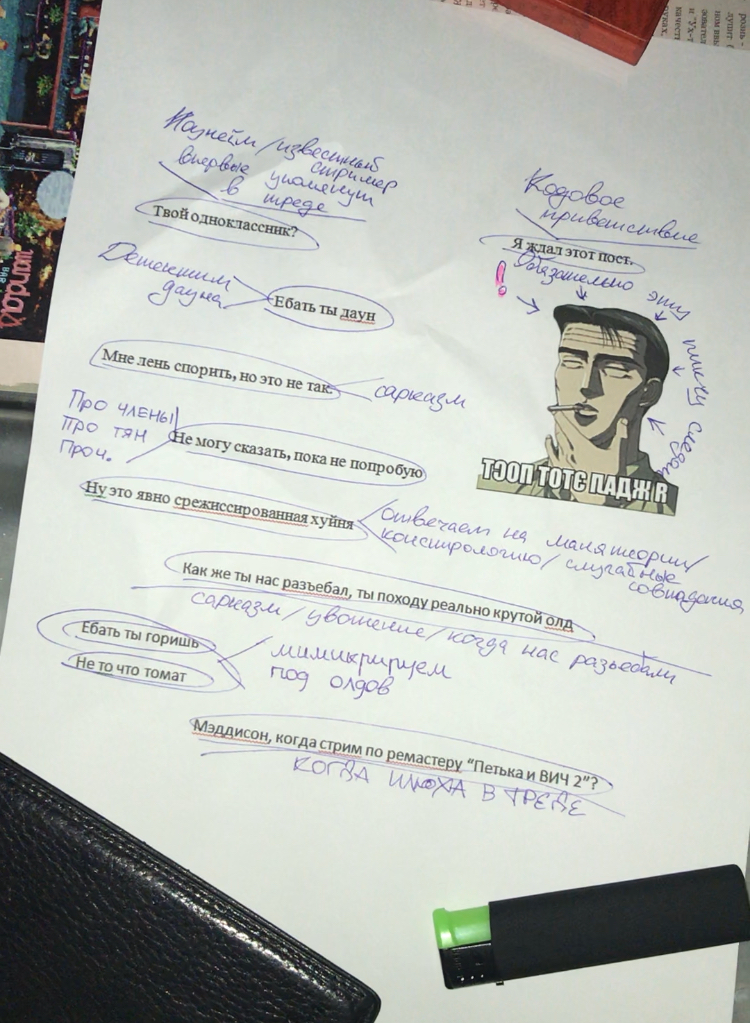 Ноунейм/известный
стример
впервые упомянут
в треде
Твой одноклассник?
Кодовое
приветствие
Я ждал этот пост.
Обязательно эту
пикчу следом
!
ТЭОП ТОТЄ ПАДЖ Я
Детектим
дауна
Ебать ты даун
Мне лень спорить, но это не так.
сарказм
Про члены
Про тян
Проч.
Не могу сказать, пока не попробую
Ну это явно срежиссированная хуйня
отвечаем на манятеории/
конспирологию/случайные
совпадения
Как же ты нас разъебал, ты походу реально крутой олд
сарказм/увожение/когда нас разъебали
Ебать ты горишь
Не то что томат
мимикрируем
под олдов
Мэддисон, когда стрим по ремастеру “Петька и ВИЧ 2”?
КОГДА ИЛЮХА В ТРЕДЕ